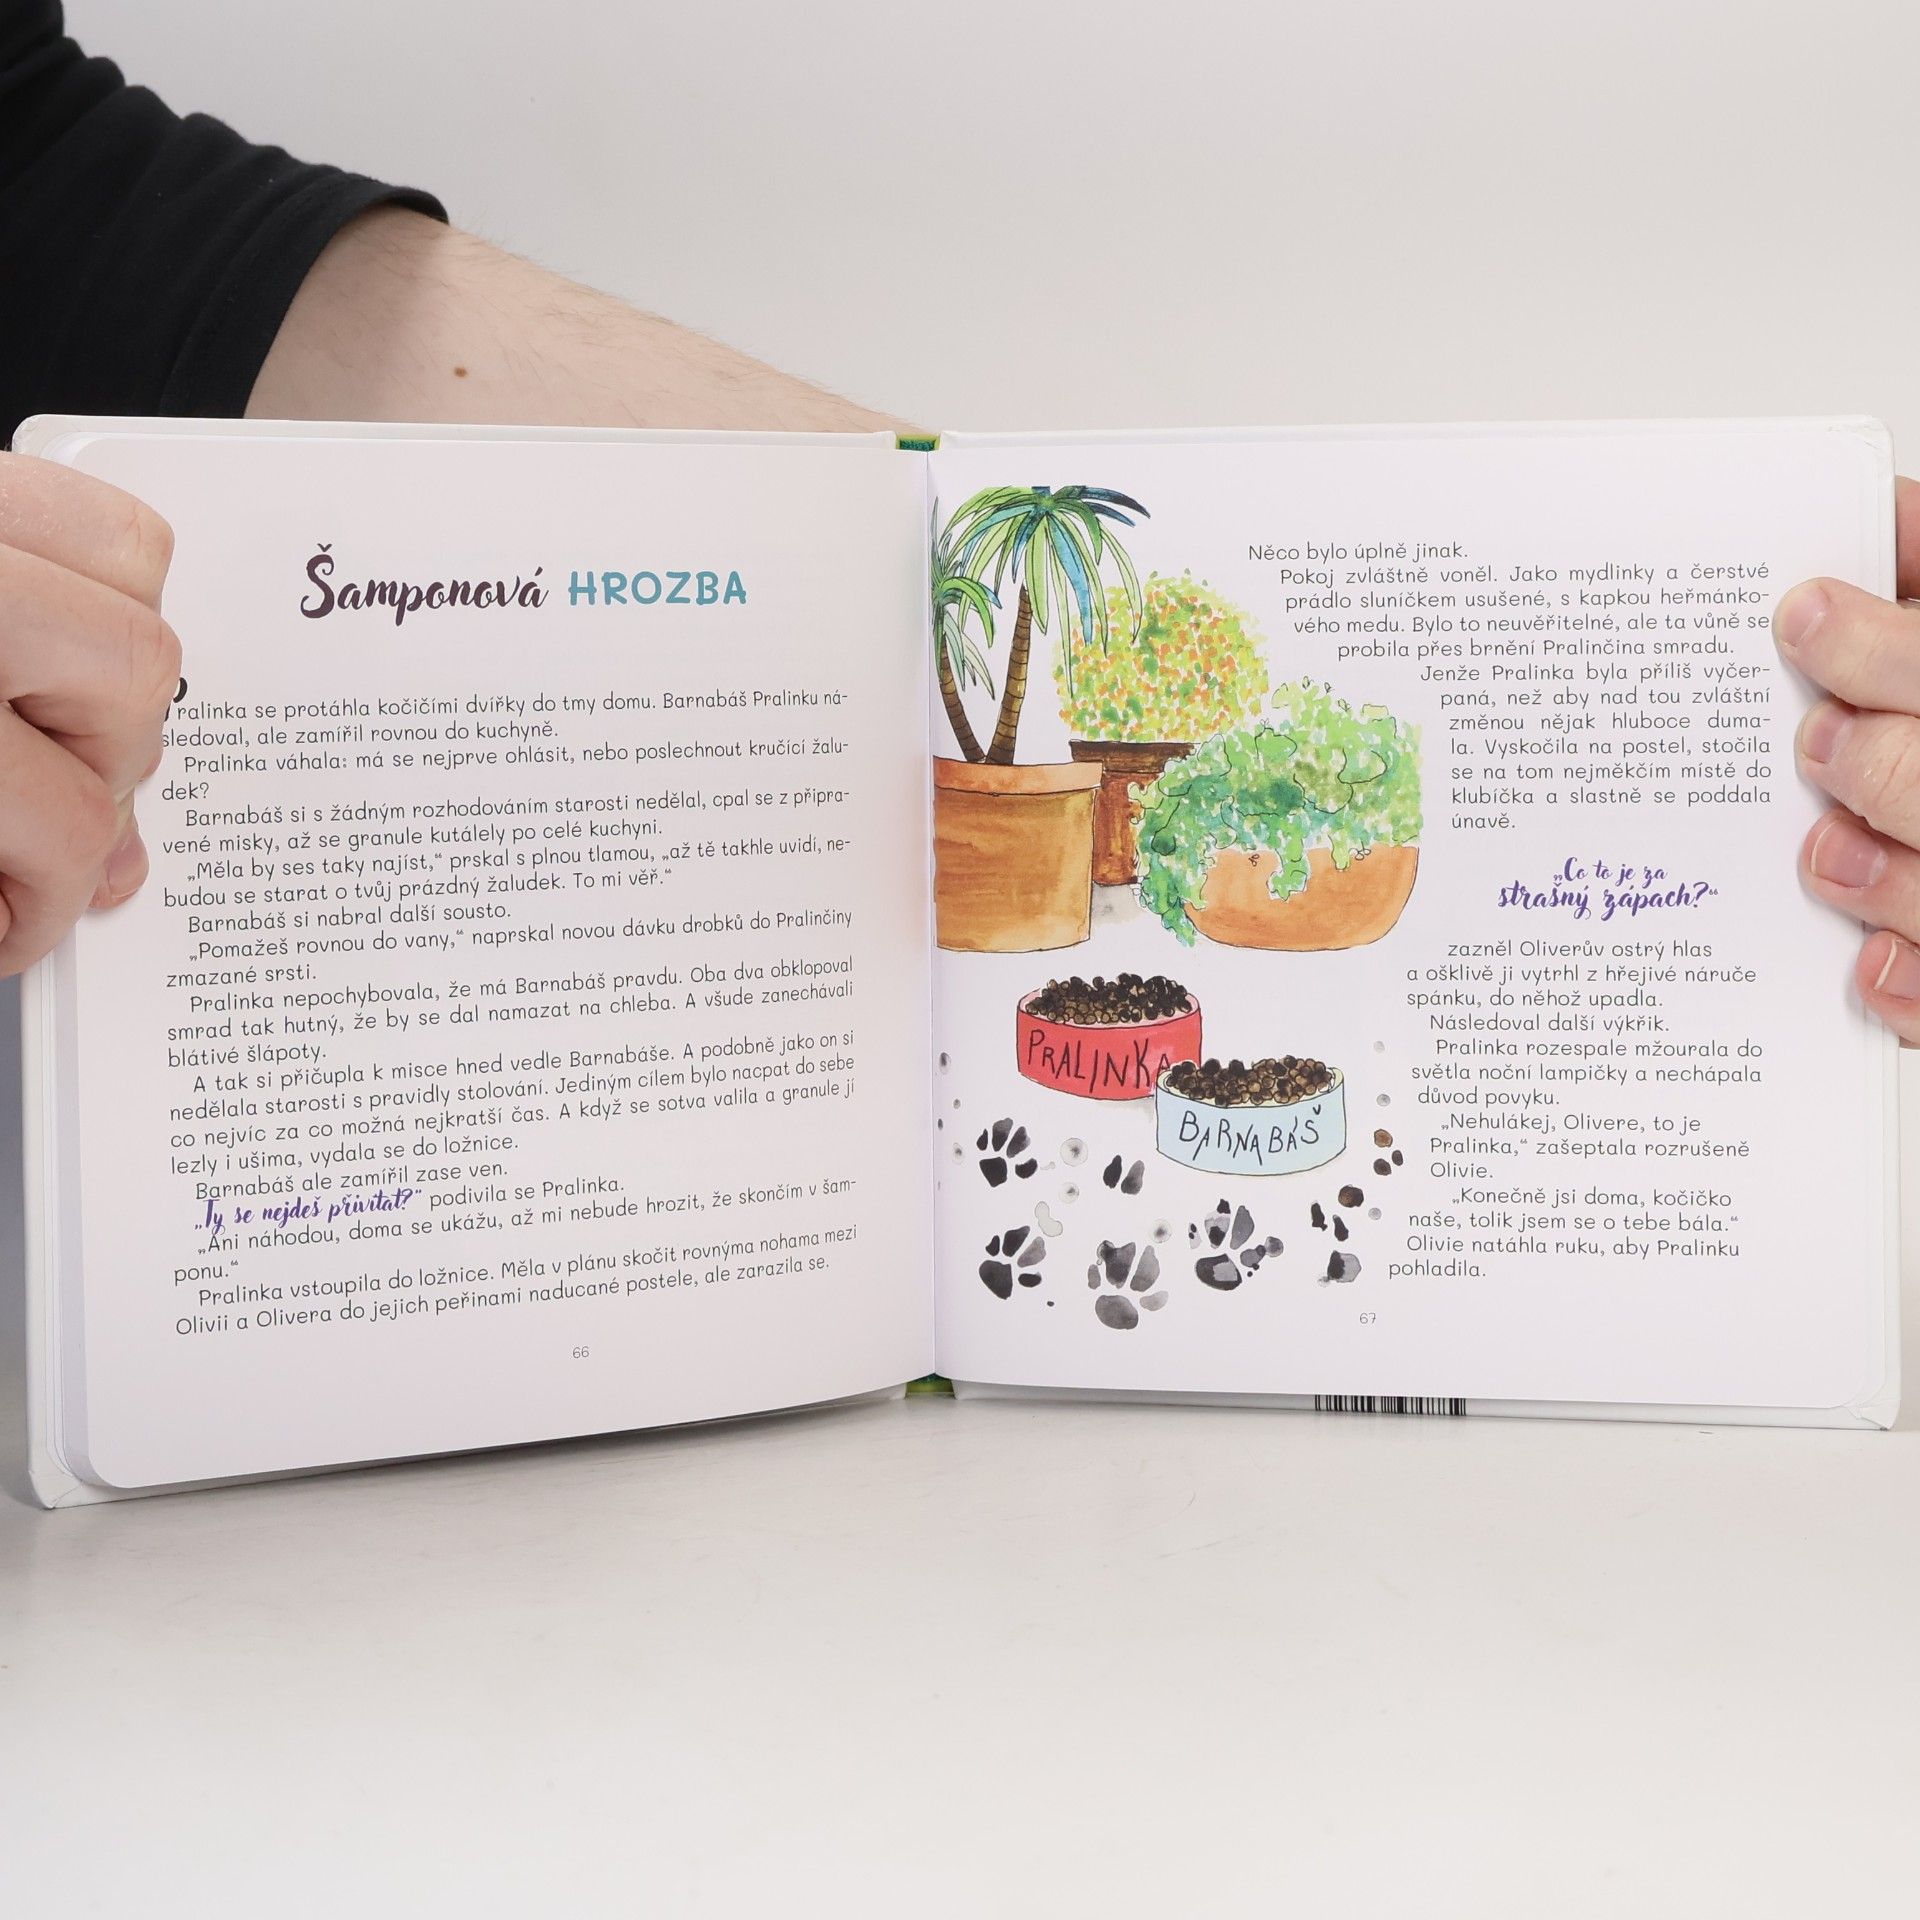 Šamponová HROZBA
Pralinka se protáhla kočičími dvířky do tmy domu. Barnabáš Pralinku ná-
sledoval, ale zamířil rovnou do kuchyně.
Pralinka váhala: má se nejprve ohlásit, nebo poslechnout kručící žalu-
dek?
Barnabáš si s žádným rozhodováním starosti nedělal, cpal se z připra-
vené misky, až se granule kutálely po celé kuchyni.
„Měla by ses taky najíst,“ prskal s plnou tlamou, „až tě takhle uvidí, ne-
budou se starat o tvůj prázdný žaludek. To mi věř.“
Barnabáš si nabral další sousto.
„Pomažeš rovnou do vany,“ naprskal novou dávku drobků do Pralinčiny
zmazané srsti.
Pralinka nepochybovala, že má Barnabáš pravdu. Oba dva obklopoval
smrad tak hutný, že by se dal namazat na chleba. A všude zanechávali
blátivé šlápoty.
A tak si přičupla k misce hned vedle Barnabáše. A podobně jako on si
nedělala starosti s pravidly stolování. Jediným cílem bylo nacpat do sebe
co nejvíc za co možná nejkratší čas. A když se sotva valila a granule jí
lezly i ušima, vydala se do ložnice.
Barnabáš ale zamířil zase ven.
„Ty se nejdeš přivítat?“ podivila se Pralinka.
„Ani náhodou, doma se ukážu, až mi nebude hrozit, že skončím v šam-
ponu.“
Pralinka vstoupila do ložnice. Měla v plánu skočit rovnýma nohama mezi
Olivii a Olivera do jejich peřinami naducané postele, ale zarazila se.
66
Něco bylo úplně jinak.
Pokoj zvláštně voněl. Jako mydlinky a čerstvé
prádlo sluníčkem usušené, s kapkou heřmánko-
vého medu. Bylo to neuvěřitelné, ale ta vůně se
probila přes brnění Pralinčina smradu.
Jenže Pralinka byla příliš vyčer-
paná, než aby nad tou zvláštní
změnou nějak hluboce duma-
la. Vyskočila na postel, stočila
se na tom nejměkčím místě do
klubíčka a slastně se poddala
únavě.
„Co to je za
strašný zápach?“
zazněl Oliverův ostrý hlas
a ošklivě ji vytrhl z hřejivé náruče
spánku, do něhož upadla.
Následoval další výkřik.
Pralinka rozespale mžourala do
světla noční lampičky a nechápala
důvod povyku.
„Nehulákej, Olivere, to je
Pralinka,“ zašeptala rozrušeně
Olivie.
„Konečně jsi doma, kočičko
naše, tolik jsem se o tebe bála.“
Olivie natáhla ruku, aby Pralinku
pohladila.
PRALINKA
BARNABÁŠ
67